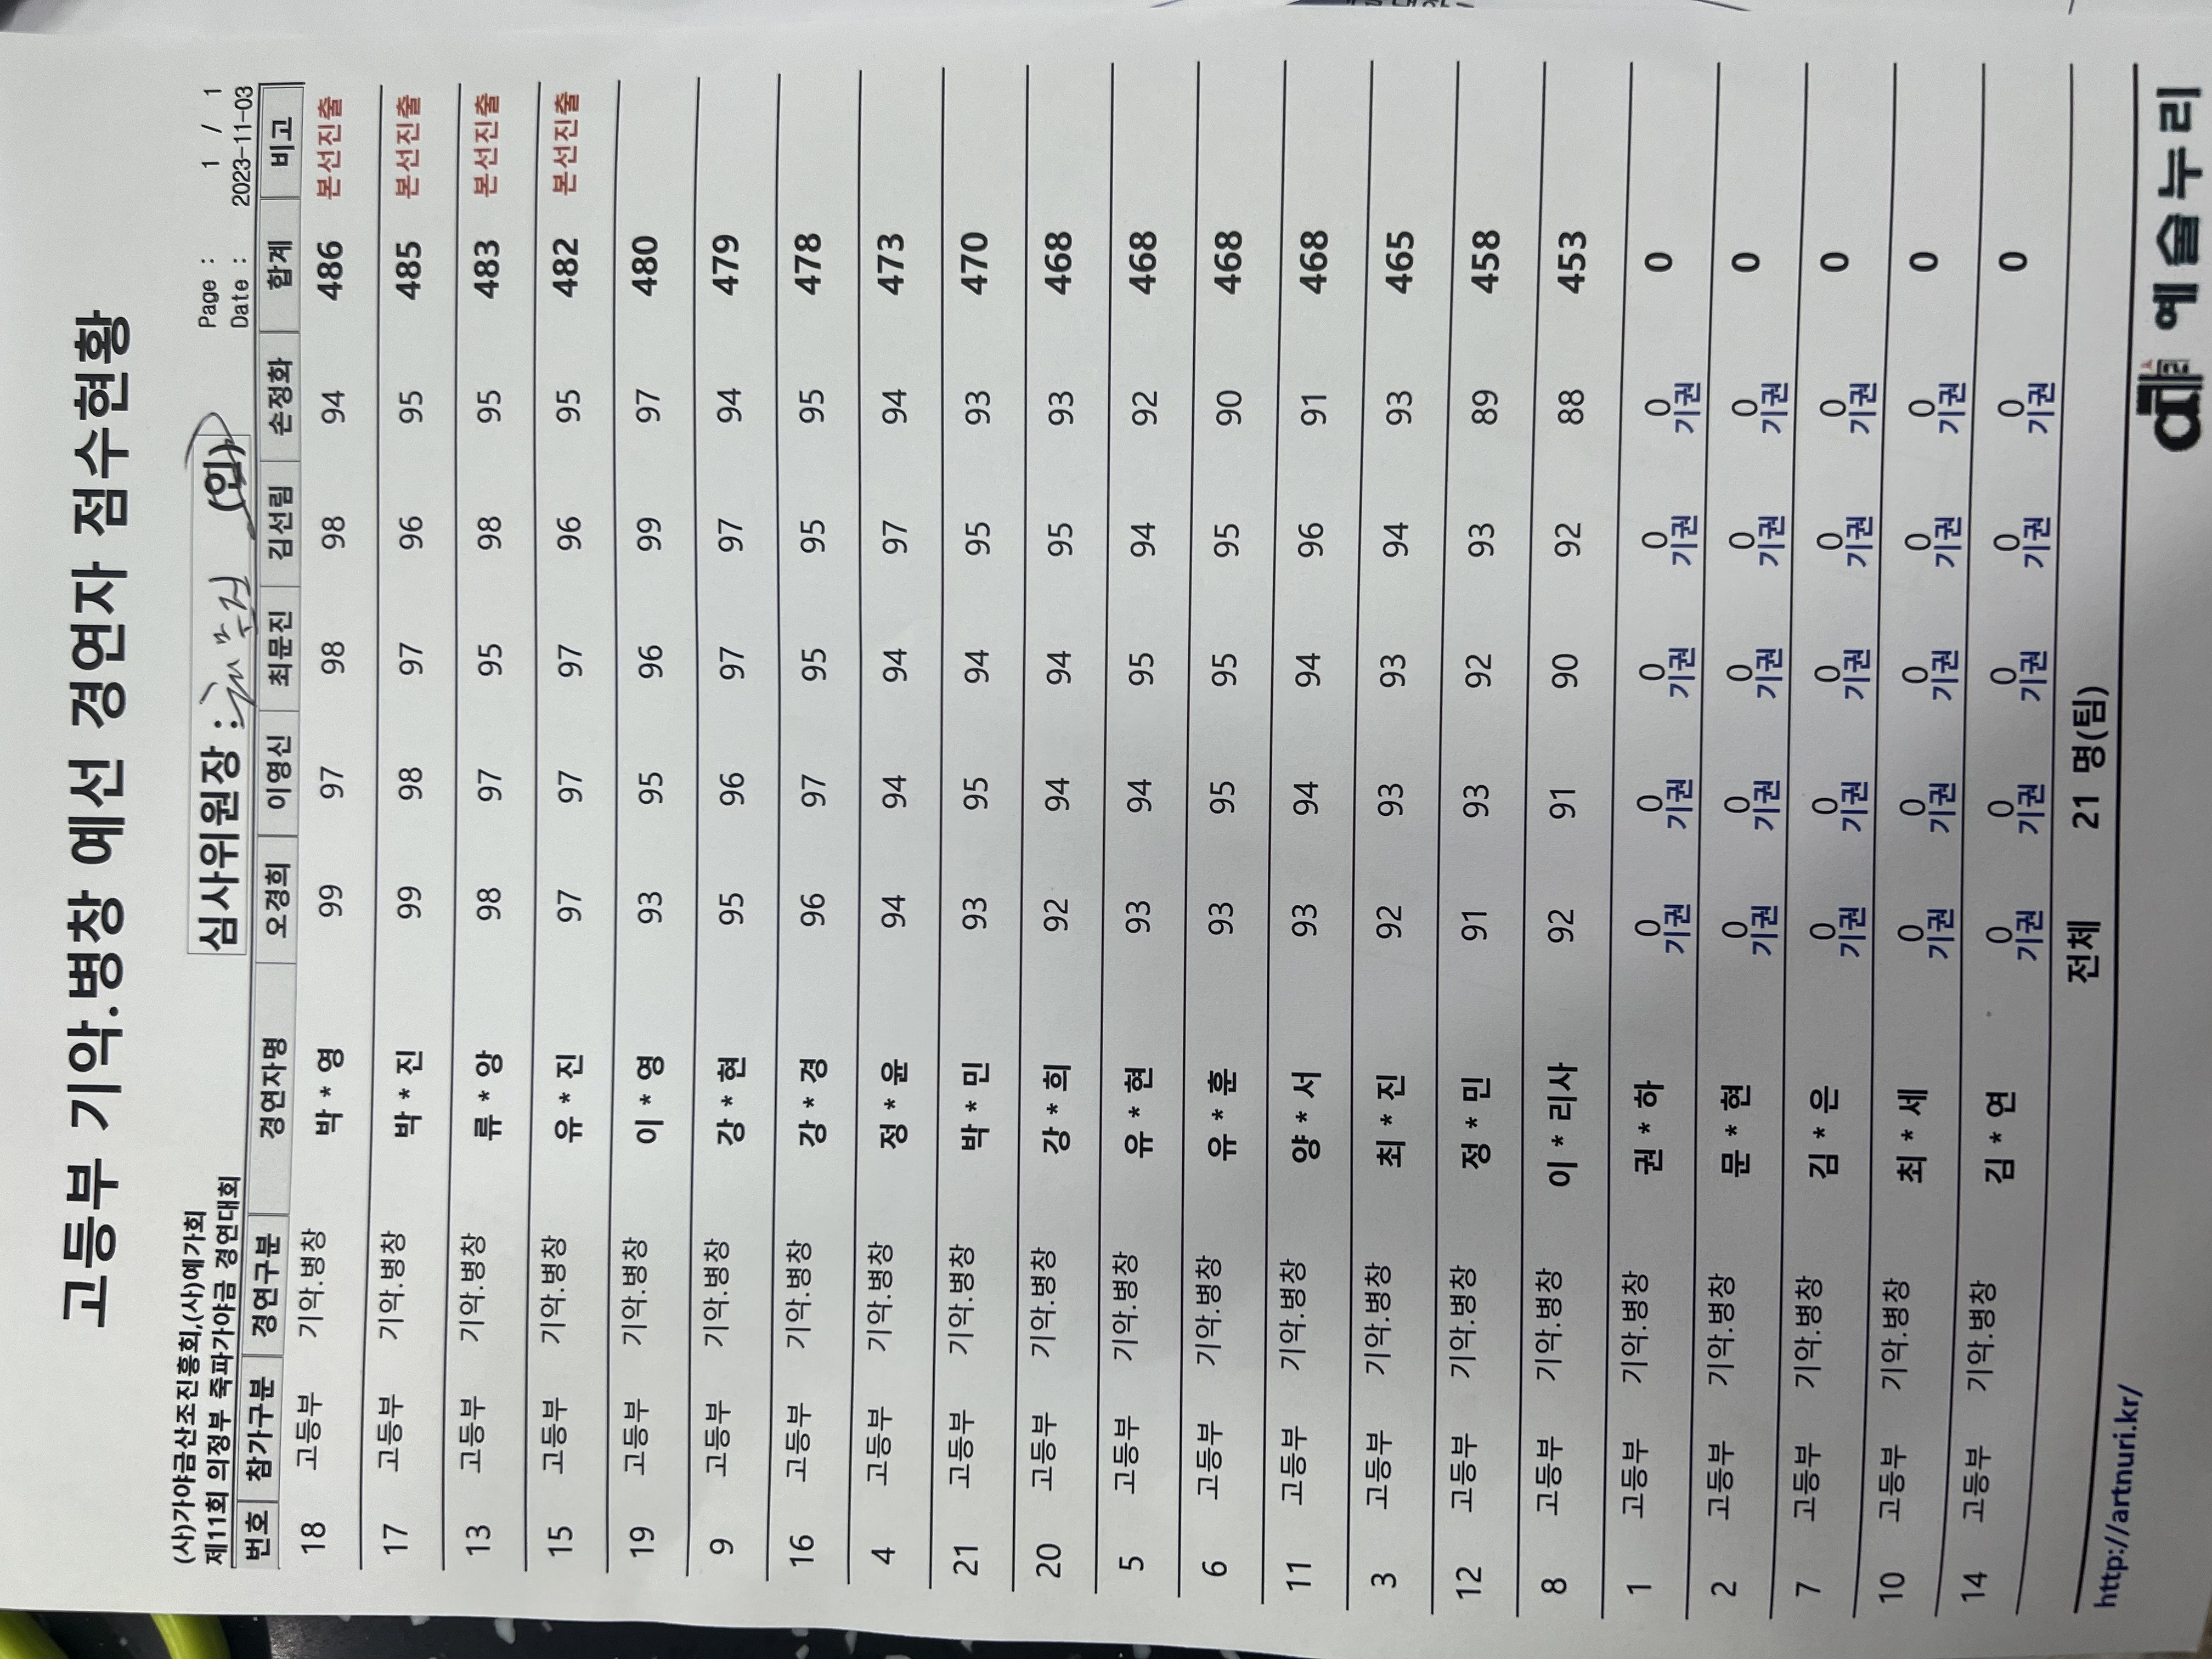 고등부 기악.병창 예선 경연자 점수현황
(사)가야금산조진흥회,(사)예가회
제11회 의정부 죽파가야금 경연대회
심사위원장 : (인)
Page : 1 / 1
Date : 2023-11-03
번호 참가구분 경연구분 경연자명 오경희 이영신 최문진 김선림 손정화 합계 비고
18 고등부 기악.병창 박 * 영 99 97 98 98 94 486 본선진출
17 고등부 기악.병창 박 * 진 99 98 97 96 95 485 본선진출
13 고등부 기악.병창 류 * 앙 98 97 95 98 95 483 본선진출
15 고등부 기악.병창 유 * 진 97 97 97 96 95 482 본선진출
19 고등부 기악.병창 이 * 영 93 95 96 99 97 480
9 고등부 기악.병창 강 * 현 95 96 97 97 94 479
16 고등부 기악.병창 강 * 경 96 97 95 95 95 478
4 고등부 기악.병창 정 * 윤 94 94 94 97 94 473
21 고등부 기악.병창 박 * 민 93 95 94 95 93 470
20 고등부 기악.병창 강 * 희 92 94 94 95 93 468
5 고등부 기악.병창 유 * 현 93 94 95 94 92 468
6 고등부 기악.병창 유 * 훈 93 95 95 95 90 468
11 고등부 기악.병창 양 * 서 93 94 94 96 91 468
3 고등부 기악.병창 최 * 진 92 93 93 94 93 465
12 고등부 기악.병창 정 * 민 91 93 92 93 89 458
8 고등부 기악.병창 이 * 리사 92 91 90 92 88 453
1 고등부 기악.병창 권 * 하 0 0 0 0 0 0
기권 기권 기권 기권 기권
2 고등부 기악.병창 문 * 현 0 0 0 0 0 0
기권 기권 기권 기권 기권
7 고등부 기악.병창 김 * 은 0 0 0 0 0 0
기권 기권 기권 기권 기권
10 고등부 기악.병창 최 * 세 0 0 0 0 0 0
기권 기권 기권 기권 기권
14 고등부 기악.병창 김 * 연 0 0 0 0 0 0
기권 기권 기권 기권 기권
전체 21 명(팀)
http://artnuri.kr/
예술누리